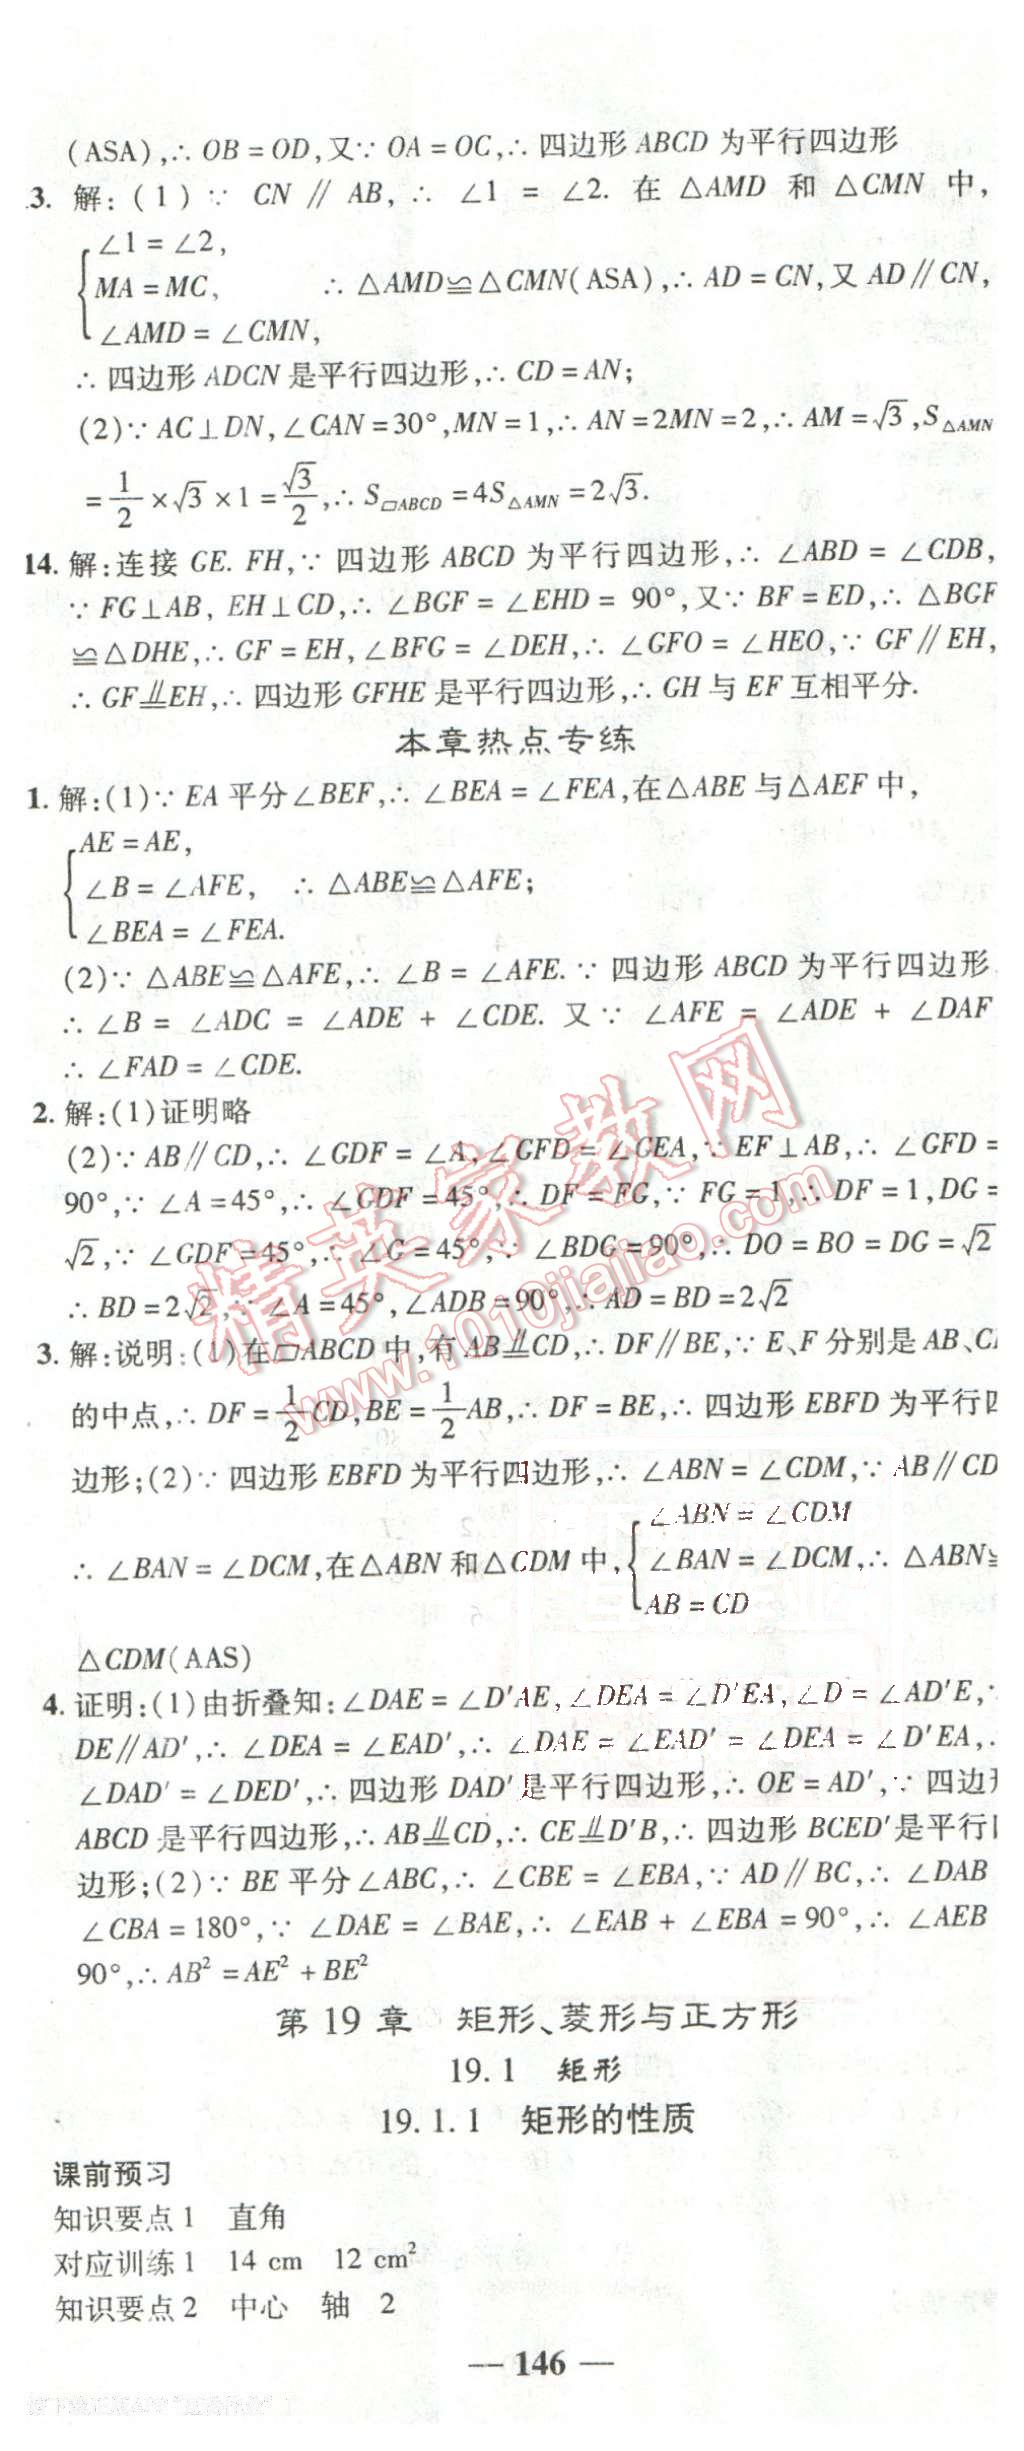 (ASA),∴ OB = OD,又∵ OA = OC,∴ 四边形 ABCD 为平行四边形
3. 解:(1)∵ CN ∥ AB,∴ ∠1 = ∠2. 在 △AMD 和 △CMN 中,
∠1 = ∠2,
MA = MC, ∴ △AMD≌△CMN(ASA),∴ AD = CN,又 AD∥CN,
∠AMD = ∠CMN,
∴ 四边形 ADCN 是平行四边形,∴ CD = AN;
(2)∵ AC⊥DN,∠CAN = 30°,MN = 1,∴ AN = 2MN = 2,∴ AM = √3,S△AMN
= 1/2 × √3 × 1 = √3/2,∴ S▱ABCD = 4S△AMN = 2√3.
14. 解:连接 GE. FH,∵ 四边形 ABCD 为平行四边形,∴ ∠ABD = ∠CDB,
∵ FG⊥AB, EH⊥CD,∴ ∠BGF = ∠EHD = 90°,又∵ BF = ED,∴ △BGF
≌△DHE,∴ GF = EH,∠BFG = ∠DEH,∴ ∠GFO = ∠HEO,∵ GF∥EH,
∴ GF⫫EH,∴ 四边形 GFHE 是平行四边形,∴ GH 与 EF 互相平分.
本章热点专练
1. 解:(1)∵ EA 平分∠BEF,∴ ∠BEA = ∠FEA,在△ABE 与△AEF 中,
AE = AE,
∠B = ∠AFE, ∴ △ABE≌△AFE;
∠BEA = ∠FEA.
(2)∵ △ABE≌△AFE,∴ ∠B = ∠AFE. ∵ 四边形 ABCD 为平行四边形
∴ ∠B = ∠ADC = ∠ADE + ∠CDE. 又∵ ∠AFE = ∠ADE + ∠DAF
∴ ∠FAD = ∠CDE.
2. 解:(1)证明略
(2)∵ AB∥CD,∴ ∠GDF = ∠A,∠GFD = ∠GEA,∵ EF⊥AB,∴ ∠GFD =
90°,∵ ∠A = 45°,∴ ∠GDF = 45°,∴ DF = FG,∵ FG = 1,∴ DF = 1,DG =
√2,∵ ∠GDF = 45°,∴ ∠G = 45°,∵ ∠BDG = 90°,∴ DO = BO = DG = √2
∴ BD = 2√2 ∵ ∠A = 45°,∠ADB = 90°,∴ AD = BD = 2√2
3. 解:说明:(1)在▱ABCD 中,有 AB⫫CD,∴ DF∥BE,∵ E、F 分别是 AB、C
的中点,∴ DF = 1/2 CD,BE = 1/2 AB,∴ DF = BE,∴ 四边形 EBFD 为平行四
边形;(2)∵ 四边形 EBFD 为平行四边形,∴ ∠ABN = ∠CDM,∵ AB∥CD
∠ABN = ∠CDM
∴ ∠BAN = ∠DCM,在△ABN 和△CDM 中, ∠BAN = ∠DCM,∴ △ABN≌
AB = CD
△CDM(AAS)
4. 证明:(1)由折叠知:∠DAE = ∠D′AE,∠DEA = ∠D′EA,∠D = ∠AD′E,∵
DE∥AD′,∴ ∠DEA = ∠EAD′,∴ ∠DAE = ∠EAD′ = ∠DEA = ∠D′EA,∴
∠DAD′ = ∠DED′,∴ 四边形 DAD′是平行四边形,∴ OE = AD′,∵ 四边形
ABCD 是平行四边形,∴ AB⫫CD,∴ CE⫫D′B,∴ 四边形 BCED′是平行四
边形;(2)∵ BE 平分∠ABC,∴ ∠CBE = ∠EBA,∵ AD∥BC,∴ ∠DAB
∠CBA = 180°,∵ ∠DAE = ∠BAE,∴ ∠EAB + ∠EBA = 90°,∴ ∠AEB
90°,∴ AB² = AE² + BE²
第 19 章 矩形、菱形与正方形
19. 1 矩形
19. 1. 1 矩形的性质
课前预习
知识要点 1 直角
对应训练 1 14 cm 12 cm²
知识要点 2 中心 轴 2
— 146 —
精英家教网
www.1010jiajiao.com